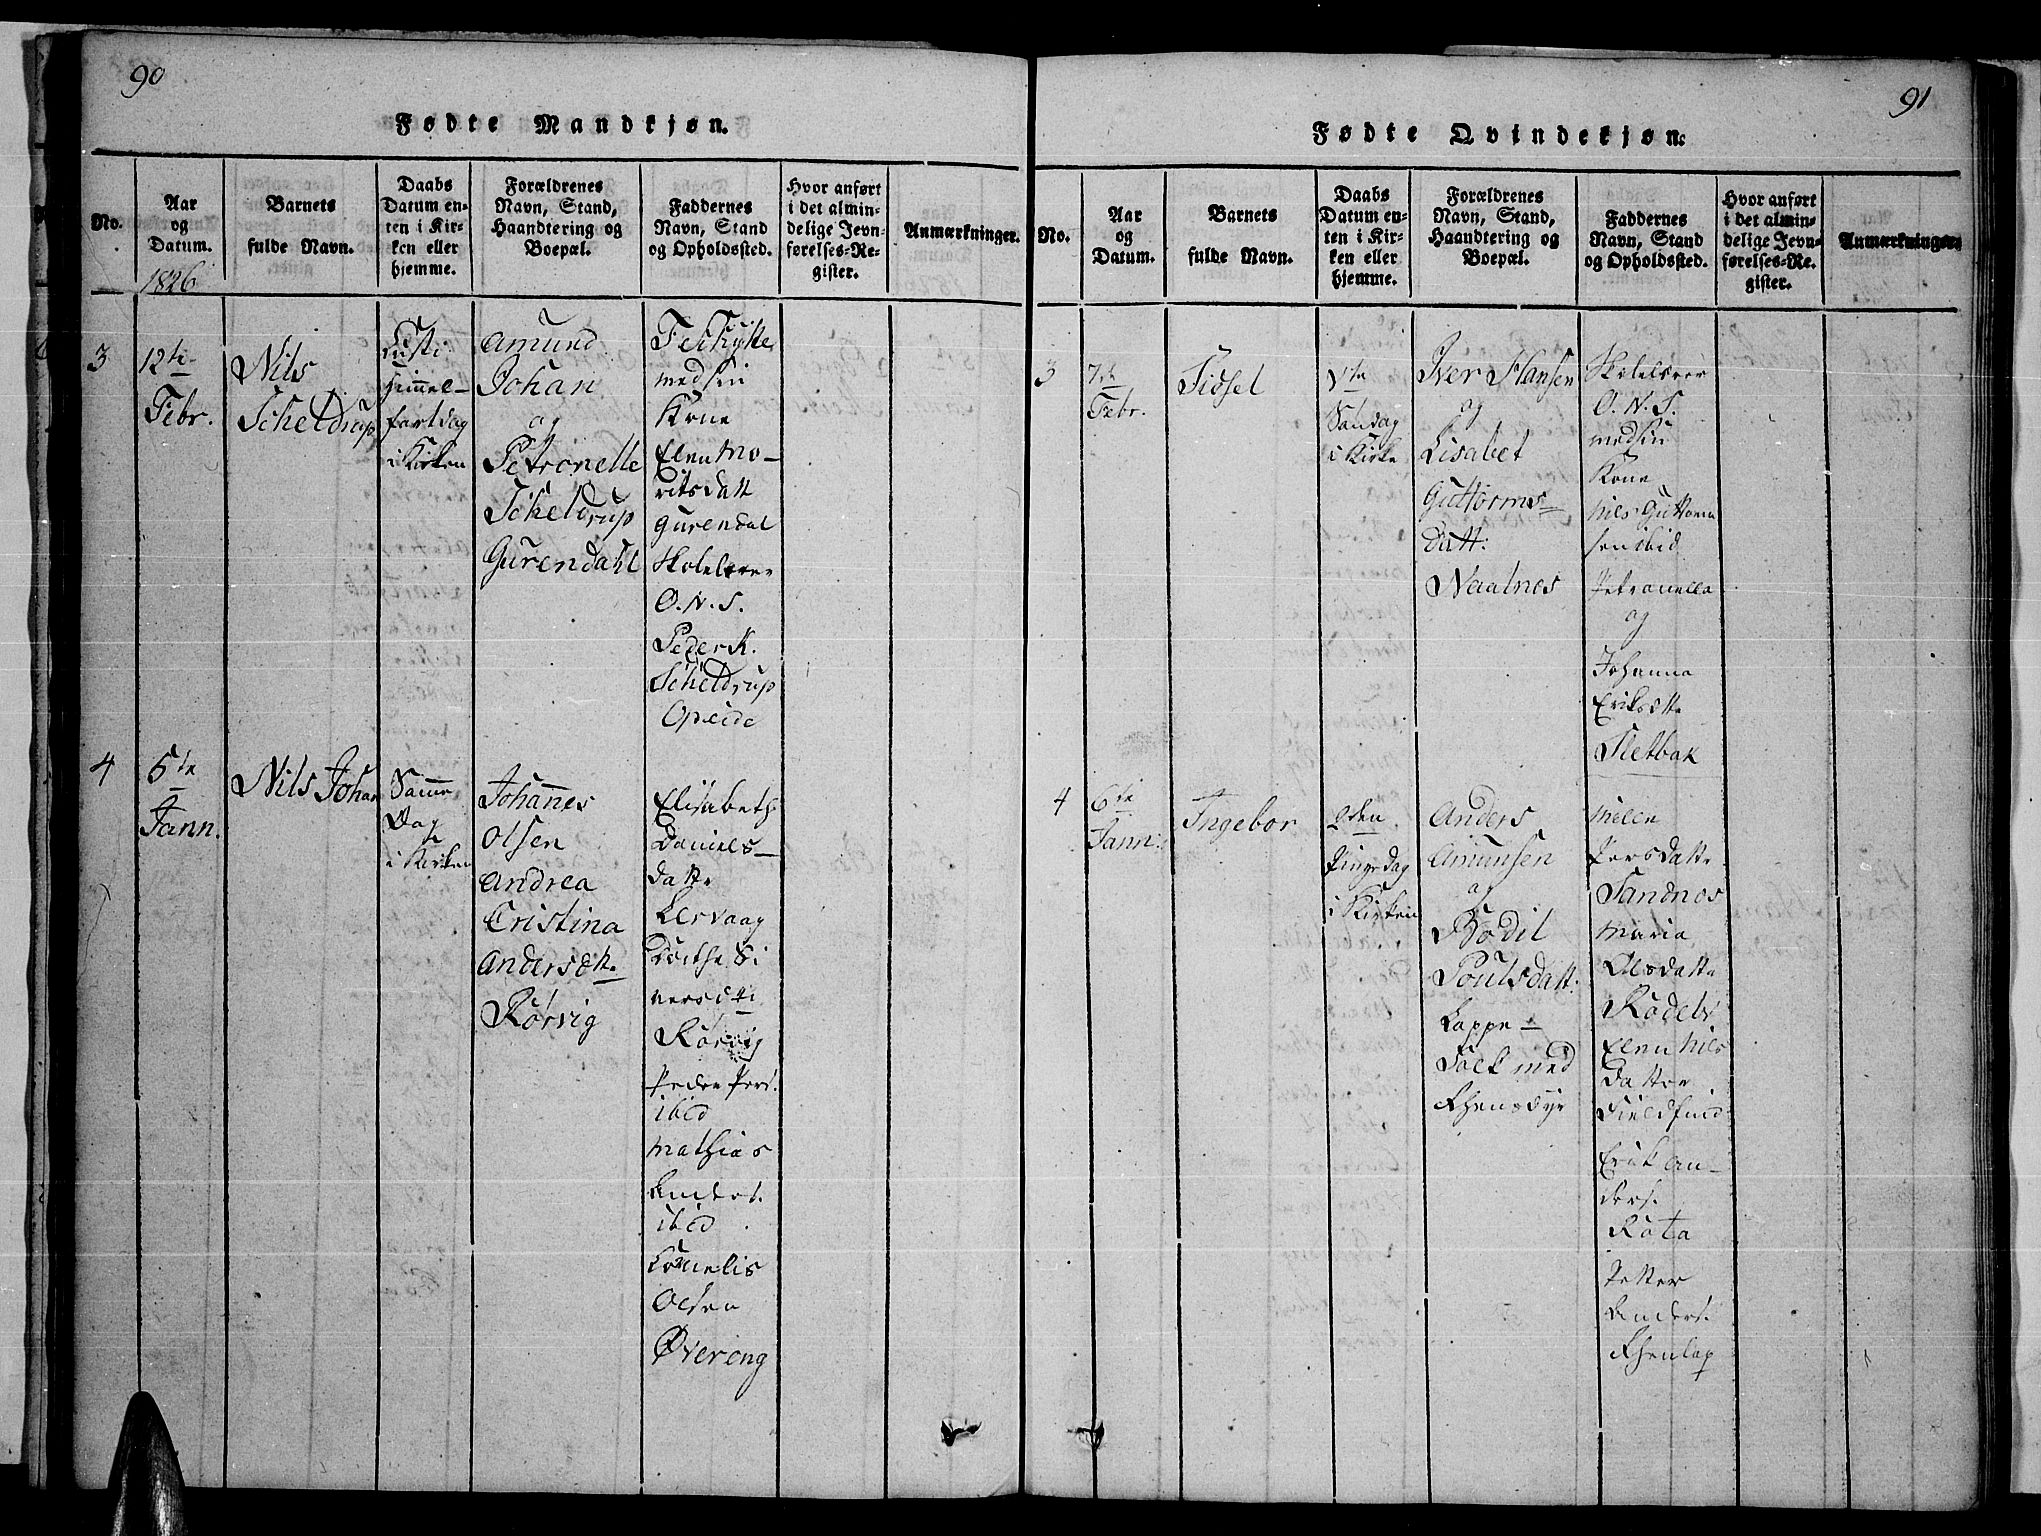 90
Fødte Mandkjøn.
No.
Aar
og
Datum.
1826
Barnets
fulde Navn.
Daabs
Datum en-
ten i Kir-
ken eller
hjemme.
Forældrenes
Navn, Stand,
Haandtering og
Boepæl.
Faddernes
Navn, Stand
og Opholdssted.
Hvor anført
i det almin-
delige Jevn-
førelses-Re-
gister.
Anmærkninger.
3
12te
Febr.
Nils
Scheldrup
Himmel-
fartsdag
i Kirken
Amund
Johan
og
Petronelle
Scheldrup
Gurendahl
med sin
Kone
Elen Mo-
ritsdatt
Gurendal
Skolelærer
O. N. S.
Peder K.
Scheldrup
Opeide
4
5te
Jann.
Nils Johan
Samme
Dag
i Kirken
Johannes
Olsen
Andrea
Cristina
Andersdtt.
Rørvig
Elisabeth
Daniels-
datter
Lervaag
Dorthe Si
versdtt
Rørvig
Peder Pers.
ibid
Mathias
Anders.
ibid
Kornelis
Olsen
Øvereng
91
Fødte Qvindekjøn.
No.
Aar
og
Datum.
Barnets
fulde Navn.
Daabs
Datum en-
ten i Kir-
ken eller
hjemme.
Forældrenes
Navn, Stand,
Haandtering og
Boepæl.
Faddernes
Navn, Stand
og Opholdssted.
Hvor anført
i det almin-
delige Jevn-
førelses-Re-
gister.
Anmærkninger
3
7de
Febr.
Sidsel
Søndag
i Kirke
Iver Hansen
og
Lisabet
Guttorms-
Datt:
Naalnes
Skolelærer
O. N. S.
med sin
Kone
Nils Guttorm
sen ibid
Petronella
og
Johanna
Eriksdtte
Sletbak
4
6te
Jann:
Ingebor
2den
Pingsdag
i Kirken
Anders
Amunsen
og
Bodil
Poulsdatt.
Lappe-
Folk med
Rhensdyr
Persdatte
Sandnes
Maria
Olsdatte
Elen Nils
Datter
Erik An-
ders.
Rota
Petter
Anders.
Rhenlap